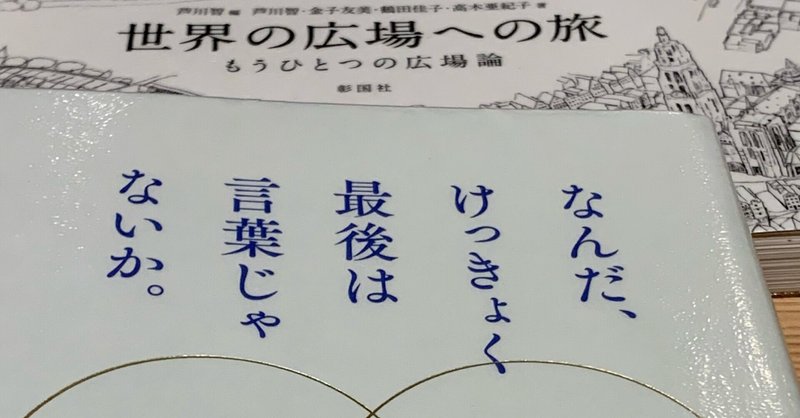 芦川智 編 芦川智・金子友美・鶴田佳子・高木亜紀子 著
世界の広場への旅
もうひとつの広場論
彰国社
なんだ、
けっきょく
最後は
言葉じゃ
ないか。